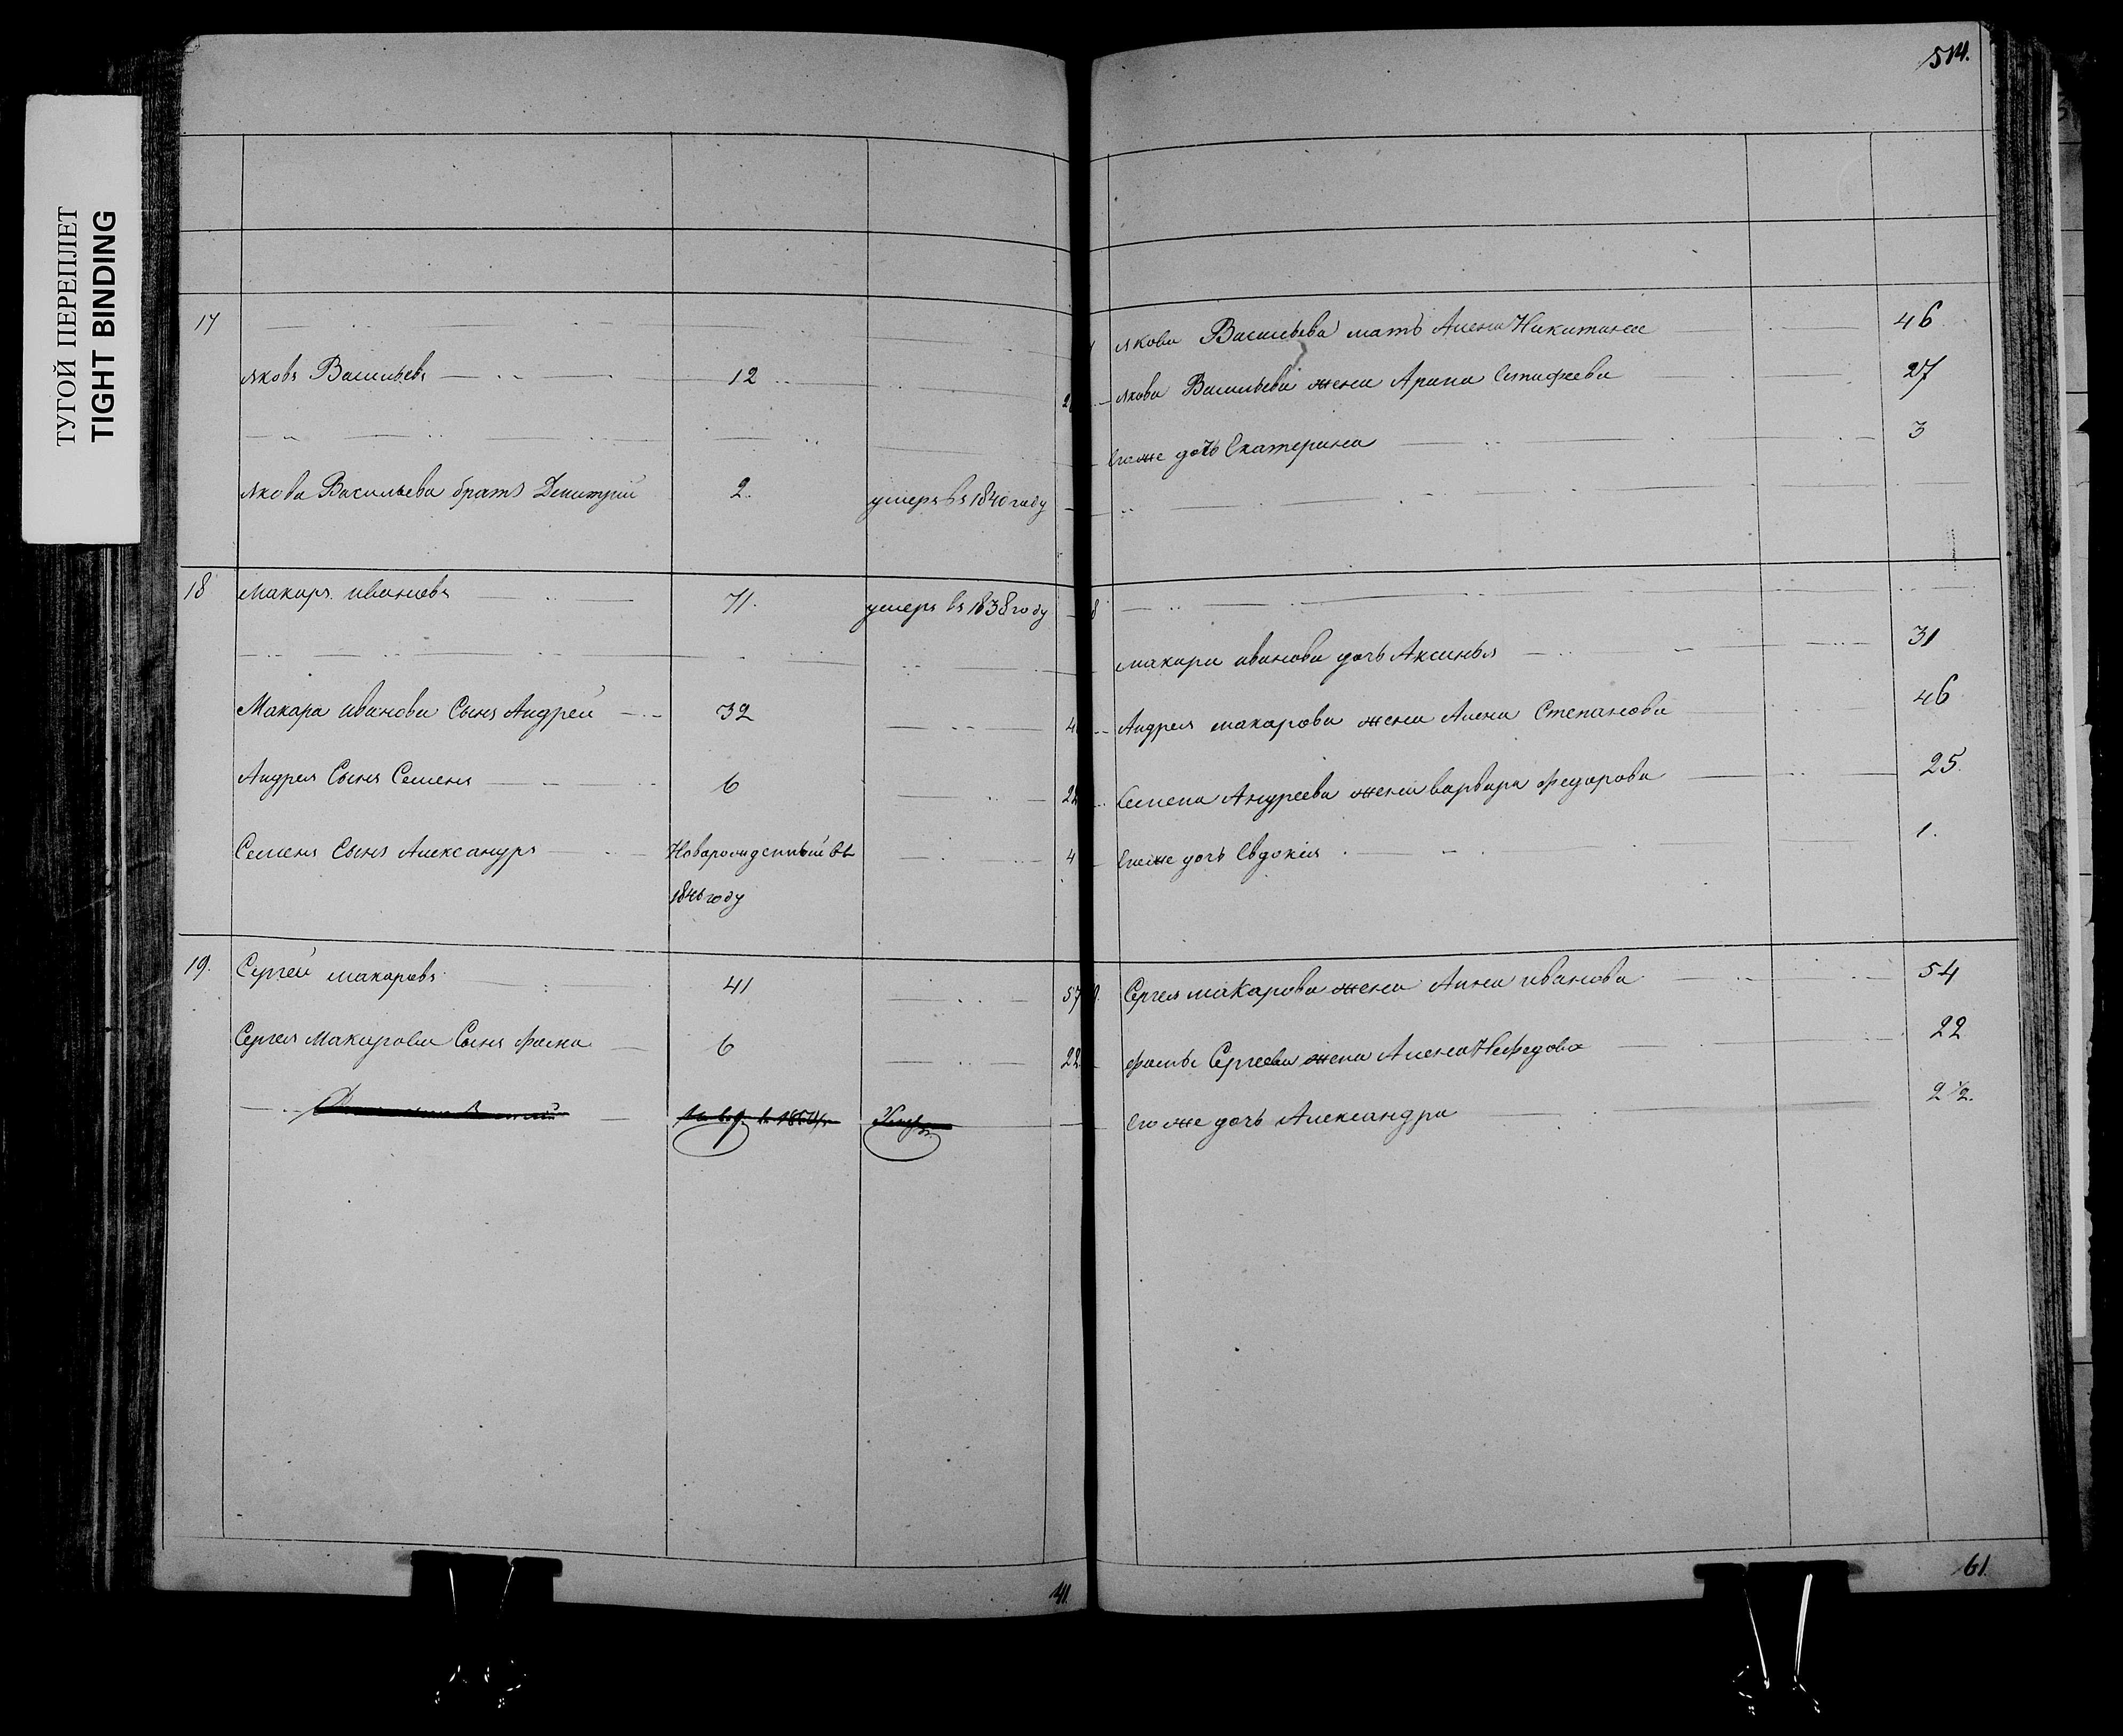 ТУГОЙ ПЕРЕПЛЕТ
TIGHT BINDING
514.
17
Яковъ Васильевъ 12
Якова Васильева братъ Дмитрий 2. умеръ въ 1840 году
18 Макаръ ивановъ 71. умеръ въ 1838 году
Макара иванова Сынъ Андрей 32 4
Андрея Сынъ Семенъ 6 22
Семена Сынъ Александръ Новарожденный въ 4
1846 году
19. Сергей макаровъ 41 57
Сергея Макарова Сынъ Фома 6 22
41
Якова Васильева мать Алена Никитина 46
Якова Васильева жена Арина 27
Егоже дочь Екатерина 3
8
макара иванова дочь Аксинья 31
Андрея макарова жена Алена Степанова 46
Семена Андреева жена варвара Федорова 25.
Егоже дочь Евдокия 1.
Сергея макарова жена Анна иванова 54
Фомы Сергеева жена Алена Нефедова 22
Егоже дочь Александра 2 1/2.
61.